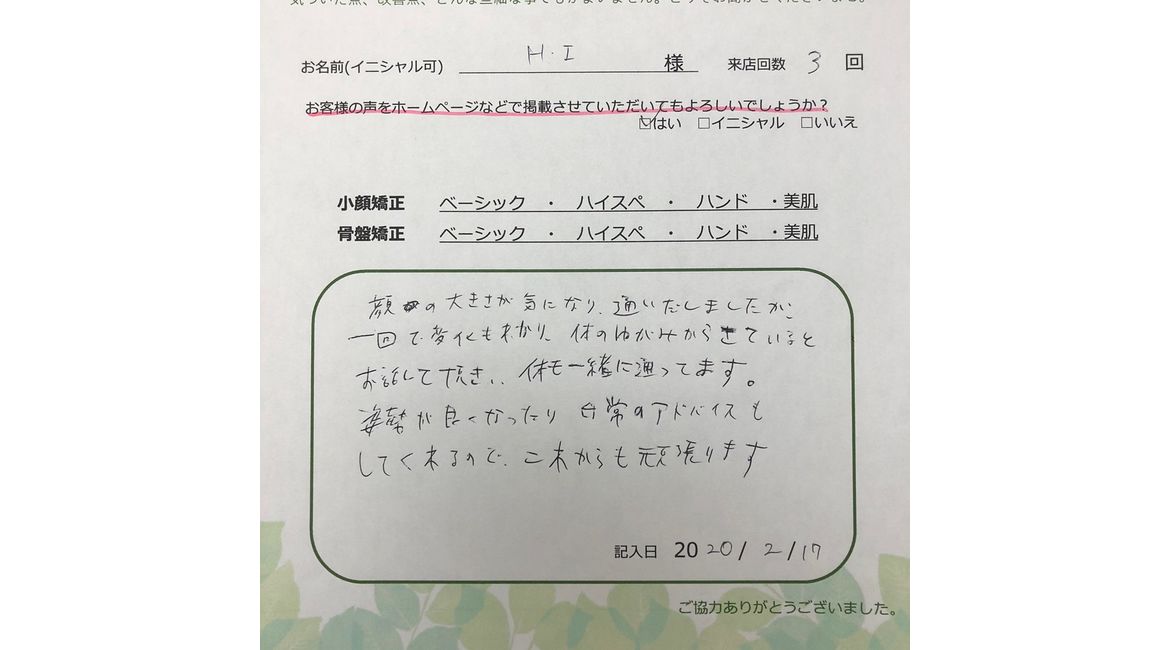 気づいた点、改善点、どんな些細な事でもかまいません。どうぞお聞かせくださいませ。
お名前(イニシャル可) H・I 様 来店回数 3 回
お客様の声をホームページなどで掲載させていただいてもよろしいでしょうか？
☑はい □イニシャル □いいえ
小顔矯正 ベーシック ・ ハイスペ ・ ハンド ・美肌
骨盤矯正 ベーシック ・ ハイスペ ・ ハンド ・美肌
顔の大きさが気になり、通いだしましたが、
一回で変化もわかり、体のゆがみからきていると
お話して頂き、体も一緒に通ってます。
姿勢が良くなったり 日常のアドバイスも
してくれるので、これからも頑張ります
記入日 2020/2/17
ご協力ありがとうございました。